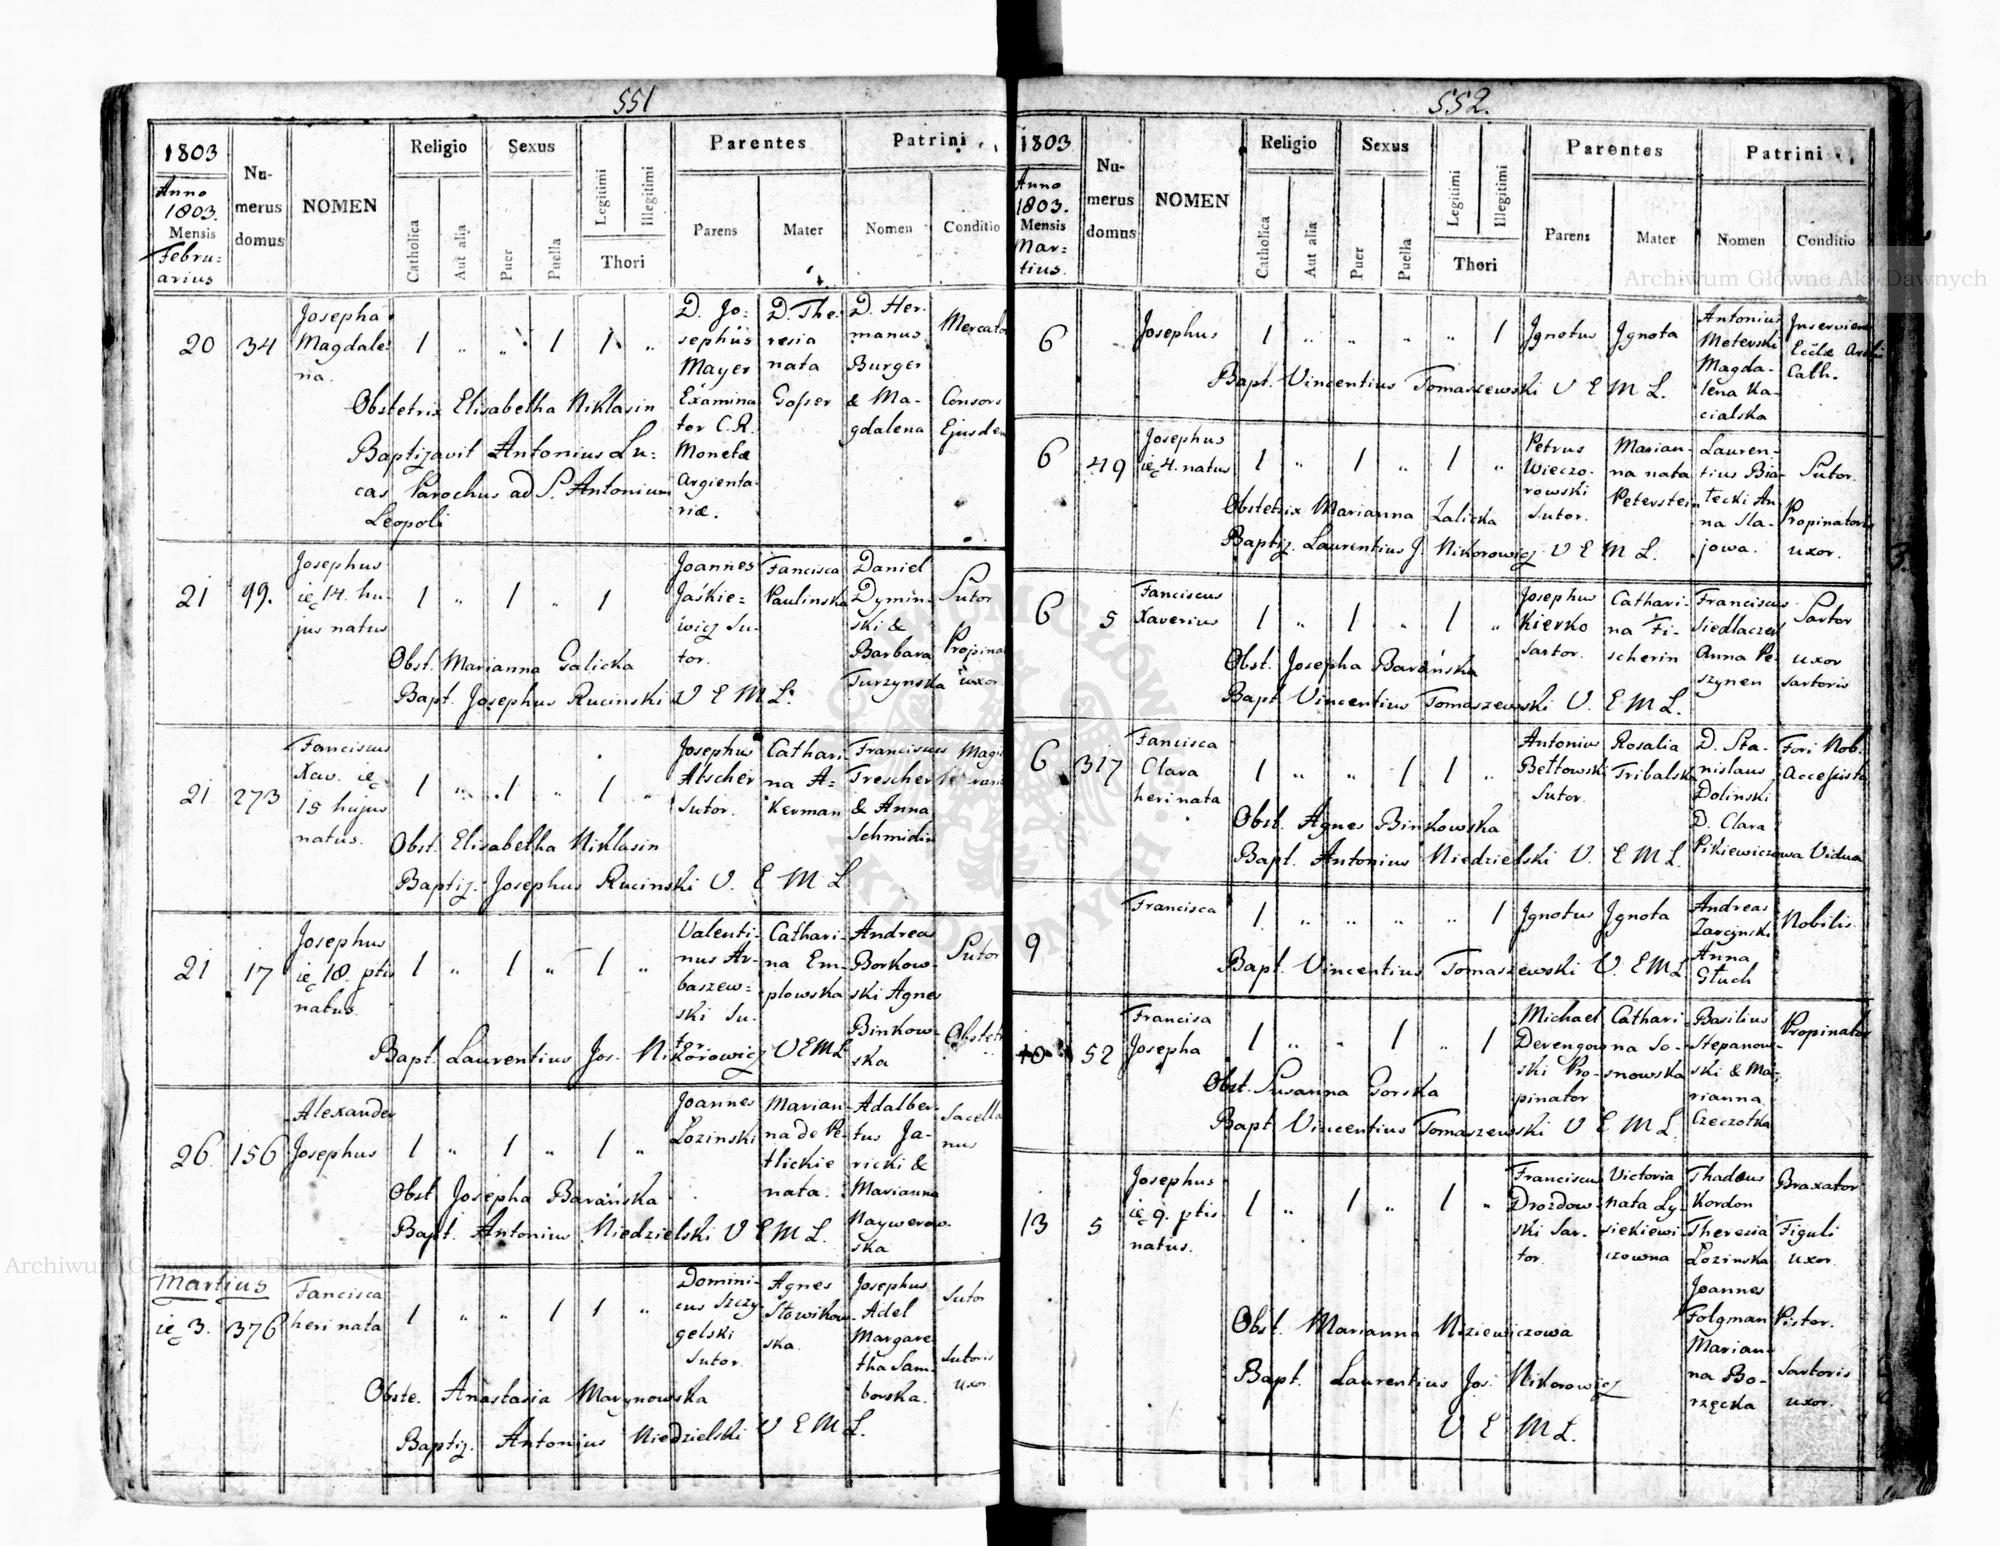 551
1803
Anno
1803.
Mensis
Febru:
arius
Nu-
merus
domus
NOMEN
Religio
Catholica
Aut alia
Sexus
Puer
Puella
Legitimi
Illegitimi
Thori
Parentes
Parens
Mater
Patrini
Nomen
Conditio
20
34
Josepha
Magdale
na.
1 " " 1 1 "
D. Jo:
sephus
Mayer
Examina
tor C.R.
Monetæ
Argienta
riæ.
D. The
resia
nata
Gofser
D. Her
manus
Burger
& Ma-
gdalena
Mercato
Consors
Ejusdem
Obstetrix Elisabetha Niklasin
Baptizavit Antonius Lu:
cas Parochus ad S. Antonium
Leopoli
21
99.
Josephus
ię 14. hu
jus natus
1 " 1 " 1
Joannes
Jaśkie:
wicz Su-
tor.
Fancisca
Paulinska
Daniel
Dymin-
ski &
Barbara
Turzynska
Sutor
Propina
uxor
Obst. Marianna Galicka
Bapt. Josephus Rucinski V E M L.
21
273
Fanciscus
Xav. ię
15 hujus
natus.
1 " 1 " 1 "
Josephus
Atscher
Sutor.
Cathari
na A-
kerman
Franciscus
Trescher
& Anna
Schmidin
Obst. Elisabetha Niklasin
Baptiz. Josephus Rucinski V. E M L
21
17
Josephus
ię 18 ptis
natus
1 " 1 " 1 "
Valenti-
nus Ar-
baszew:
ski Su-
tor.
Cathari-
na Em-
plowska
Andreas
Borkow-
ski Agnes
Binkow-
ska
Sutor
Obstetr
Bapt. Laurentius Jos. Nikorowicz V E M L
26.
156
Alexander
Josephus
1 " 1 " 1 "
Joannes
Lozinski
Marian
na de Pe-
tlickie
nata.
Adalber
tus Ja-
ricki &
Marianna
Naywerow-
ska
Sacella
nus
Obst Josepha Barańska
Bapt. Antonius Niedzielski V E M L.
Martius
ię 3.
376
Fancisca
heri nata
1 " " 1 1 "
Domini-
cus Szczy-
gelski
Sutor
Agnes
Slowikow
ska.
Josephus
Adel
Margare
tha Sam-
borska.
Sutor
Sutoris
uxor
Obste. Anastasia Marynowska
Baptiz. Antonius Niedzielski V E M L.
552.
1803
Anno
1803.
Mensis
Mar:
tius.
Nu-
merus
domus
NOMEN
Religio
Catholica
Aut alia
Sexus
Puer
Puella
Legitimi
Illegitimi
Thori
Parentes
Parens
Mater
Patrini
Nomen
Conditio
6
Josephus
1 " " " " 1
Ignotus
Ignota
Antonius
Moterski
Magda-
lena Ka-
cialska
Inservien
Cath.
Bapt. Vincentius Tomaszewski V E M L.
6
49
Josephus
ię 4. natus
1 " 1 " 1 "
Petrus
Wieczo-
rowski
Sutor.
Marian-
na nata
Peterstein
Lauren-
tius Bia-
łecki An
na Sla-
jowa.
Sutor.
Propinatoris
uxor.
Obstetrix Marianna Zalicka
Baptiz. Laurentius J. Nikorowicz V E M L.
6
5
Fanciscus
Xaverius
1 " 1 " 1 "
Josephus
Kierko
Sartor.
Cathari-
na Fi-
scherin
Franciscus
Siedlaczek
Anna Pe-
szynen
Sartor
uxor
Sartoris
Obst. Josepha Barańska
Bapt Vincentius Tomaszewski V. E M L.
6
317
Fancisca
Clara
heri nata
1 " " 1 1 "
Antonius
Bełtowski
Sutor.
Rosalia
Tribalska
D. Sta-
nislaus
Dolinski
D. Clara
Pikiewiczowa
Fori Nob.
Accessista
Vidua
Obst. Agnes Binkowska
Bapt. Antonius Niedzielski V. E M L.
9
Francisca
1 " " " " 1
Ignotus
Ignota
Andreas
Zarczynski
Anna
Głuch
Nobilis
Bapt. Vincentius Tomaszewski V. E M L
10
52
Francisa
Josepha
1 " " 1 " 1
Michael
Derengow
ski Pro-
pinator
Cathari-
na So-
snowska
Basilius
Stepanow-
ski & Ma-
rianna
Czeczotka
Propinator
Obst. Susanna Gorska
Bapt Vincentius Tomaszewski V E M L
13
5
Josephus
ię 9. ptis
natus.
1 " 1 " 1 "
Franciscus
Drozdow-
ski Sar-
tor.
Victoria
nata Ly-
siekiewi-
czowna
Thadæus
Kordon
Theresia
Lozinska
Joannes
Folgman
Marian
na Bo-
rzęcka
Braxator
Figuli
uxor.
Pistor.
Sartoris
uxor.
Obst. Marianna Nizieniczowa
Bapt. Laurentius Jos. Nikorowicz
V E M L.
Archiwum Główne Akt Dawnych
Archiwum Główne Akt Dawnych